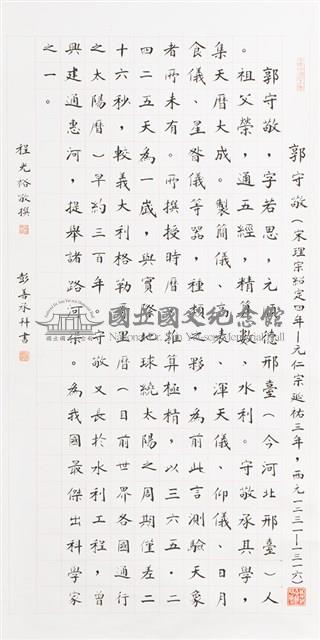 郭守敬（宋理宗紹定四年－元仁宗延祐三年，西元一二三一－一三一六）
郭守敬，字若思，元順德邢臺（今河北邢臺）人
。祖父榮，通五經，精於算數、水利。守敬承其學，
集天曆大成。製簡儀、高表、渾天儀、仰儀、日月
食儀、星晷儀等器，種類夥，為前此言測驗天象
者所未有。所撰授時曆，推算極精，以三六五．二
四二五天為一歲，與實際地球繞太陽之周期僅差二
十六秒，較義大利格勒哥里曆（日前世界各國通行
之太陽曆）早約三百年。守敬又長於水利工程，曾
興建通惠河，提舉諸路河渠。為我國最傑出科學家
之一。
程光裕敬撰
彭善丞拜書
國立國父紀念館
National Dr. Sun Yat-sen Memorial Hall